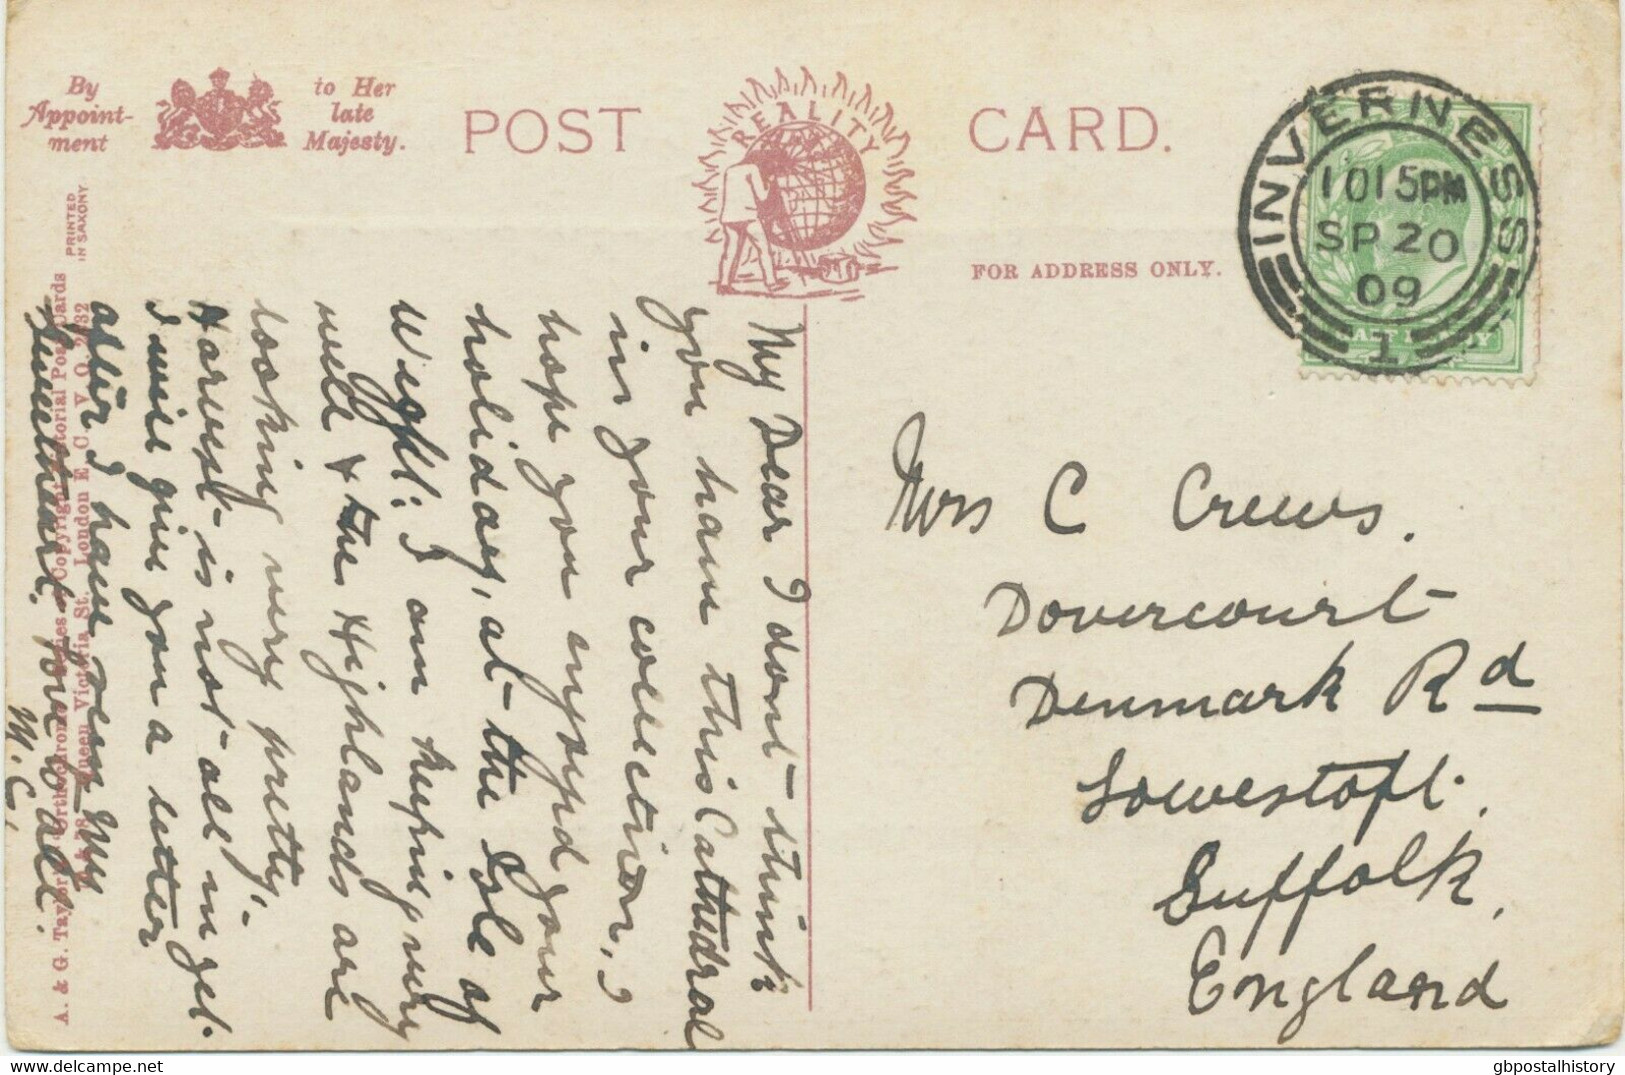 By
Appoint-
ment
to Her
late
Majesty.
POST
CARD.
REALITY
FOR ADDRESS ONLY.
INVERNESS
10 15PM
SP 20
09
1
My Dear I dont think
you have this Cathedral
in your collection, I
hope you enjoyed your
holiday, at the Isle of
Wight: I am keeping very
well & the Highlands are
looking very pretty,
Harvest is not all in yet.
I will give you a letter
after I have seen My
Sweetheart. love to all.
M.C.
Mrs C Crews.
Dovercourt
Denmark Rd
Lowestoft.
Suffolk,
England
PRINTED
IN SAXONY
A. & G. Taylor's Orthochrome Series of Copyright Pictorial Post Cards
78 Queen Victoria St. London E.C. V.O.
www.delcampe.net
gbpostalhistory